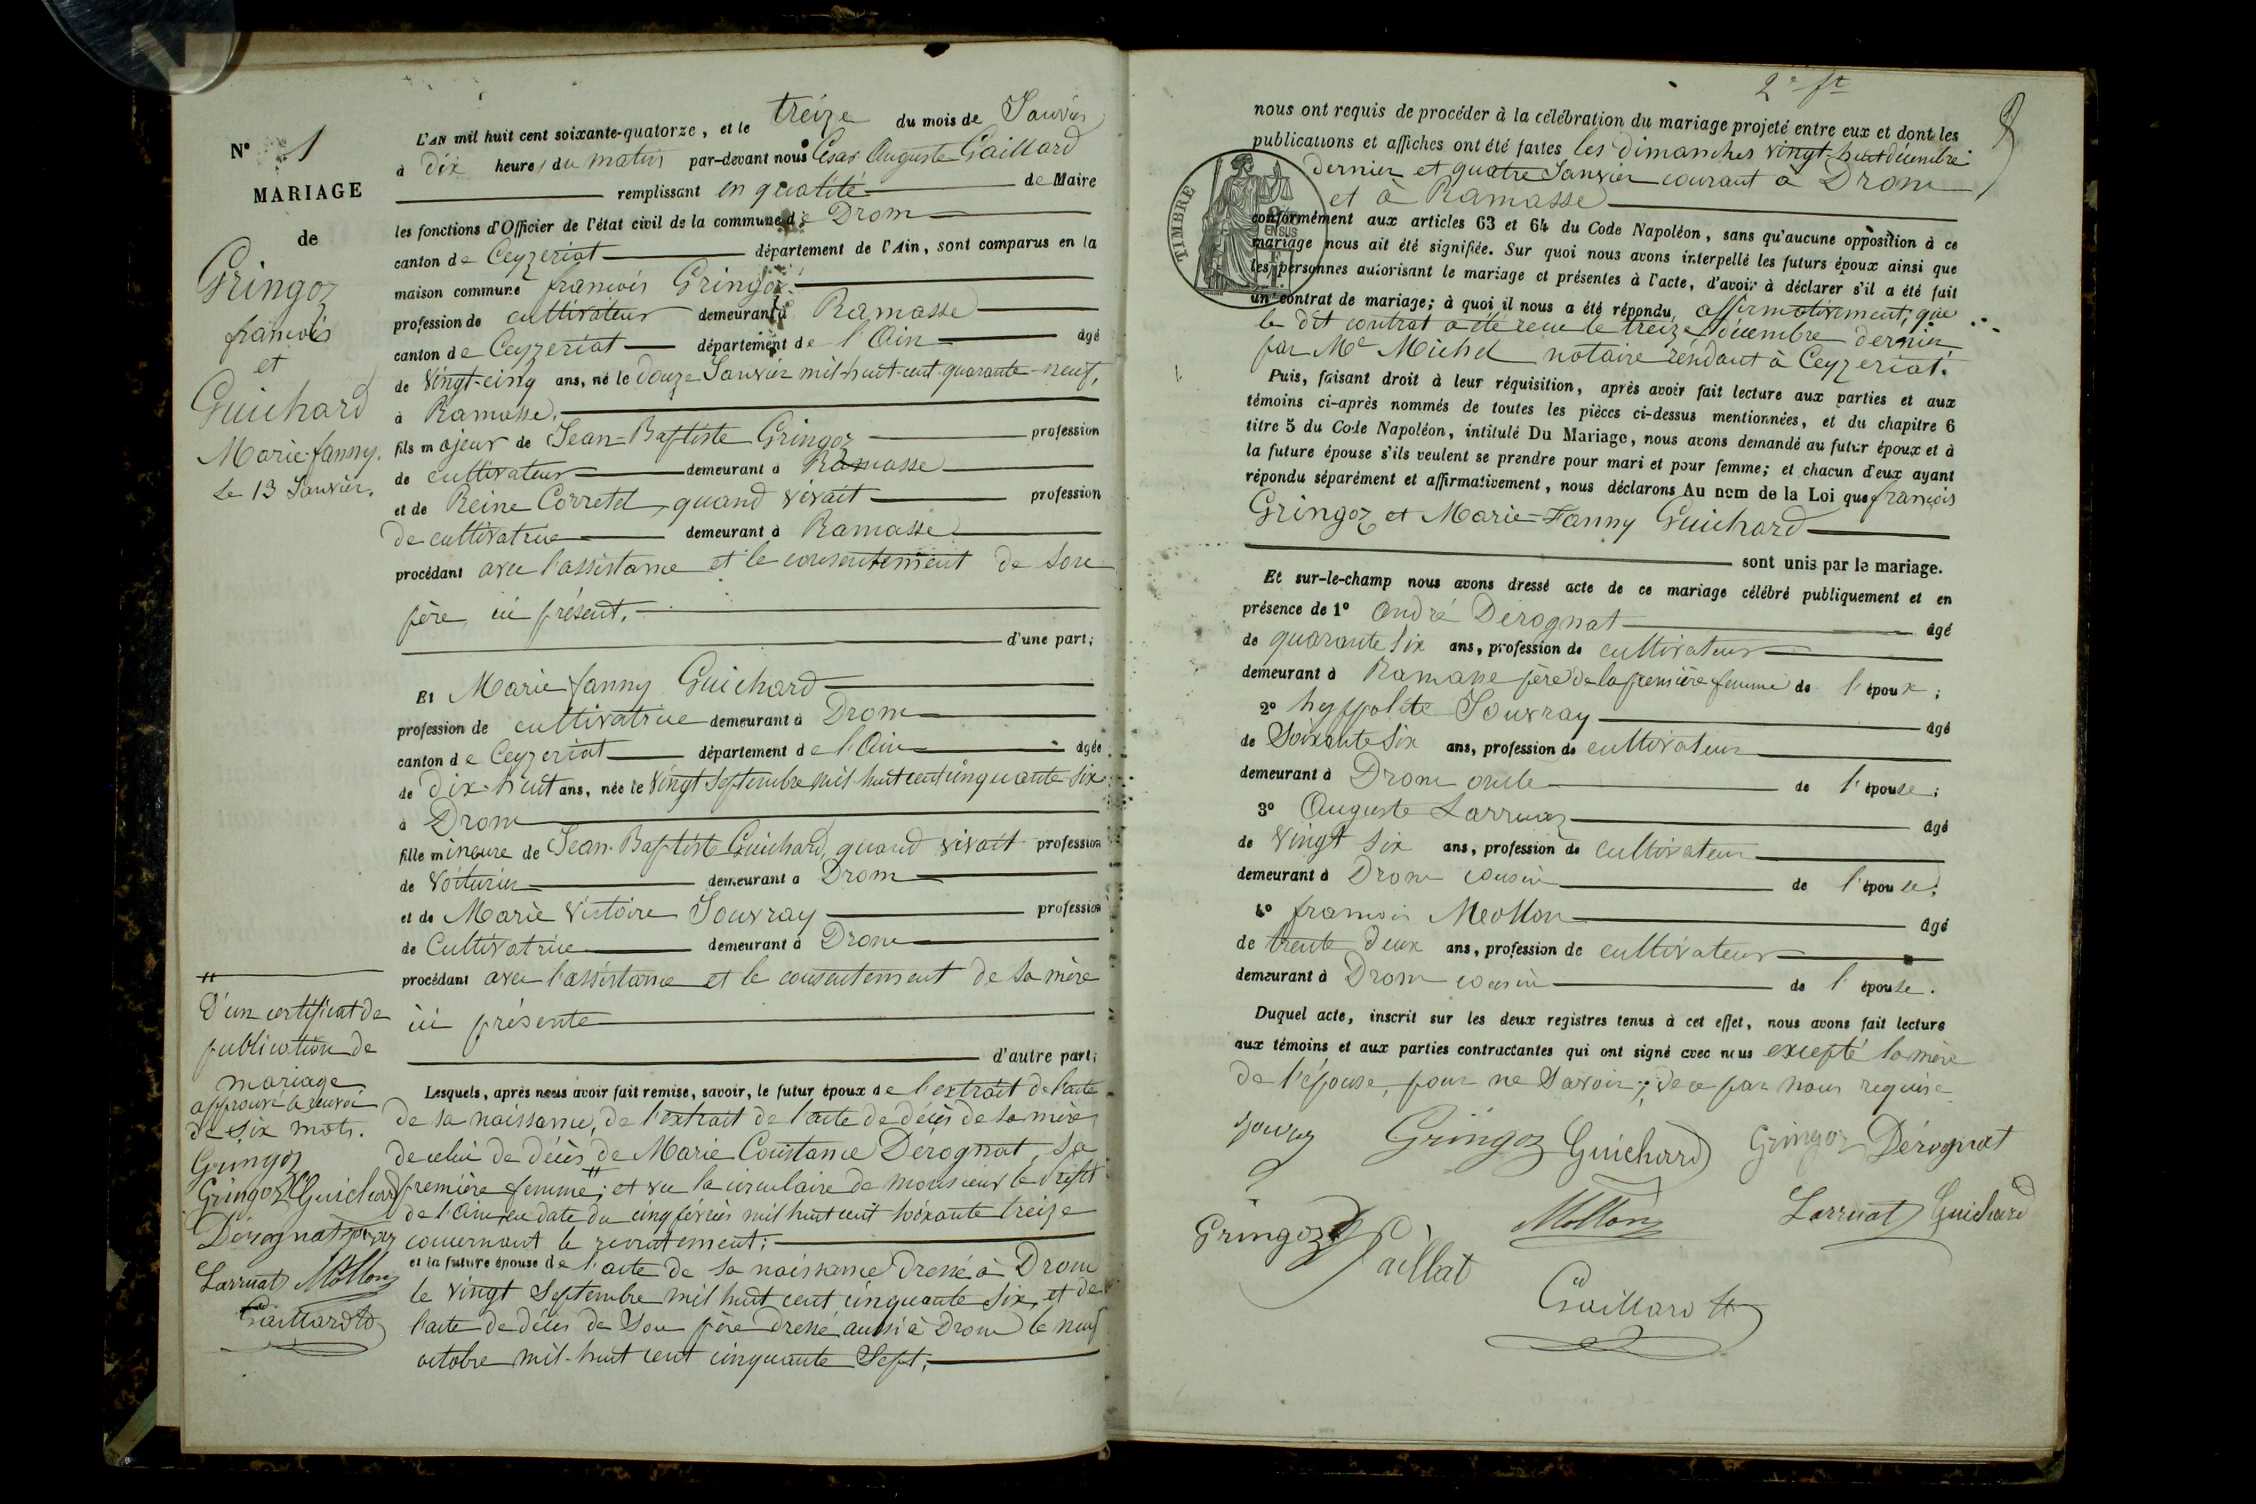 N° 1
MARIAGE
de
Gringoz
francois
et
Guichard
Marie fanny.
Le 13 Janvier.
L'AN mil huit cent soixante-quatorze, et le treize du mois de Janvier
à dix heures du matin par-devant nous César Auguste Gaillard
remplissant en qualité de Maire
les fonctions d'Officier de l'état civil de la commune de Drom
canton de Ceyzeriat département de l'Ain, sont comparus en la
maison commune francois Gringoz
profession de cultivateur demeurant à Ramasse
canton de Ceyzeriat département de l'Ain âgé
de vingt-cinq ans, né le douze Janvier mil-huit-cent-quarante-neuf,
à Ramasse.
fils majeur de Jean-Baptiste Gringoz profession
de cultivateur demeurant à Ramasse
et de Reine Corretel, quand vivait profession
de cultivatrice demeurant à Ramasse
procédant avec l'assistance et le consentement de son
père, ici présent.
d'une part;
Et Marie fanny Guichard
profession de cultivatrice demeurant à Drom
canton de Ceyzeriat département de l'Ain âgée
de dix-huit ans, née le vingt Septembre mil huit cent cinquante six
à Drom
fille mineure de Jean-Baptiste Guichard, quand vivait profession
de voiturier demeurant à Drom
et de Marie Victoire Jouvray profession
de Cultivatrice demeurant à Drom
procédant avec l'assistance et le consentement de sa mère
ici présente
d'autre part;
Lesquels, après nous avoir fait remise, savoir, le futur époux de l'extrait de l'acte
de sa naissance, de l'extrait de l'acte de décès de sa mère,
de celui de décès de Marie Constance Dérognat, sa
première femme; et vu la circulaire de monsieur le Préfet
de l'Ain, en date du cinq février mil huit cent soixante treize
concernant le recrutement;
et la future épouse de l'acte de sa naissance dressé à Drom
le vingt Septembre mil huit cent cinquante six, et de
l'acte de décès de son père dressé aussi à Drom le neuf
octobre mil-huit cent cinquante Sept,
D'un certificat de
publication de
mariage
approuvé le renvoi
de six mots.
Gringoz
Gringoz Guichard
Dérognat
Larruat Mollon
Gaillard
2e ft
nous ont requis de procéder à la célébration du mariage projeté entre eux et dont les
publications et affiches ont été faites les dimanches vingt-huit décembre
dernier et quatre Janvier courant à Drom
et à Ramasse
TIMBRE
conformément aux articles 63 et 64 du Code Napoléon, sans qu'aucune opposition à ce
mariage nous ait été signifiée. Sur quoi nous avons interpellé les futurs époux ainsi que
les personnes autorisant le mariage et présentes à l'acte, d'avoir à déclarer s'il a été fait
un contrat de mariage; à quoi il nous a été répondu affirmativement; que
le dit contrat a été recu le treize décembre dernier
par Me Michel notaire résidant à Ceyzeriat.
Puis, faisant droit à leur réquisition, après avoir fait lecture aux parties et aux
témoins ci-après nommés de toutes les pièces ci-dessus mentionnées, et du chapitre 6
titre 5 du Code Napoléon, intitulé Du Mariage, nous avons demandé au futur époux et à
la future épouse s'ils veulent se prendre pour mari et pour femme; et chacun d'eux ayant
répondu séparément et affirmativement, nous déclarons Au nom de la Loi que francois
Gringoz et Marie-Fanny Guichard
sont unis par le mariage.
Et sur-le-champ nous avons dressé acte de ce mariage célébré publiquement et en
présence de 1° André Dérognat âgé
de quarante six ans, profession de cultivateur
demeurant à Ramasse père de la première femme de l'époux;
2° hyppolite Jouvray âgé
de Soixante Six ans, profession de cultivateur
demeurant à Drom oncle de l'épouse;
3° Auguste Larruaz âgé
de vingt Six ans, profession de cultivateur
demeurant à Drom cousin de l'épouse;
4° francois Mollon âgé
de trente deux ans, profession de cultivateur
demeurant à Drom cousin de l'épouse.
Duquel acte, inscrit sur les deux registres tenus à cet effet, nous avons fait lecture
aux témoins et aux parties contractantes qui ont signé avec nous excepté la mère
de l'épouse, pour ne savoir, de ce par nous requise
Gringoz Guichard Gringoz Dérognat
Gringoz Mollon Larruat Guichard
Gaillard